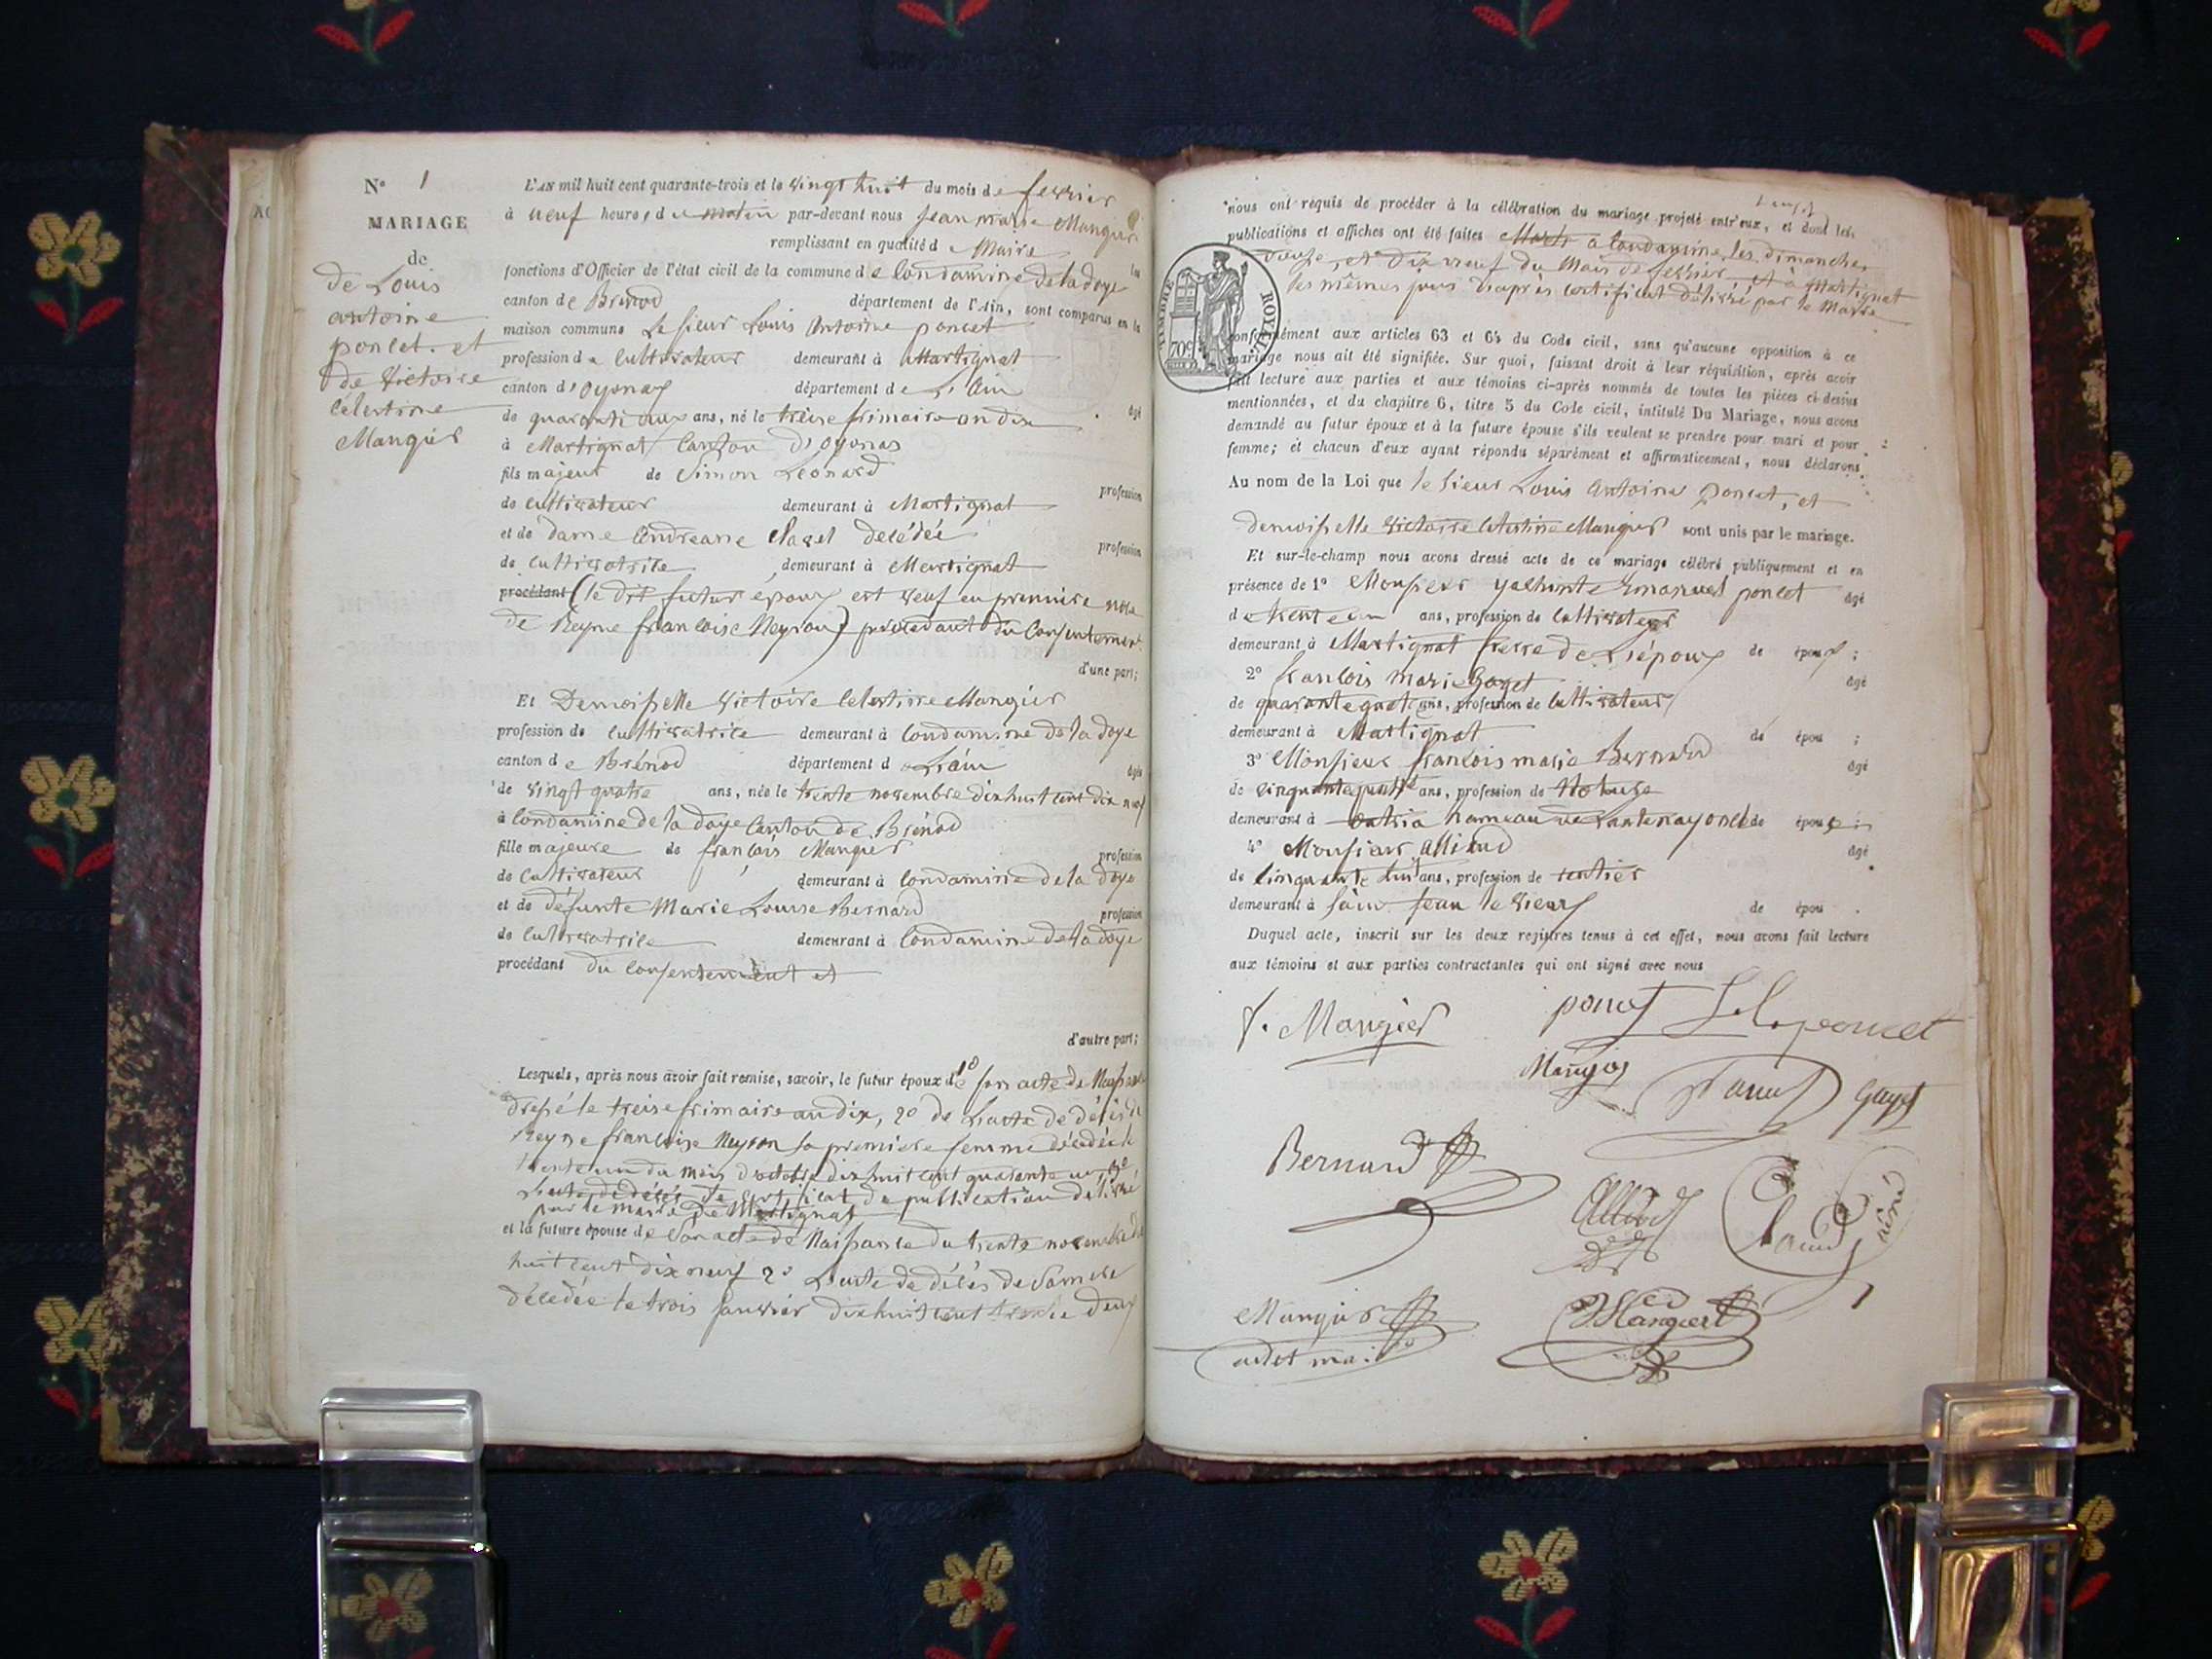 N° 1
MARIAGE
de
de Louis
antoine
poncet. et
de Victoire
Célestine
Mangier
L'AN mil huit cent quarante-trois et le vingt huit du mois de fevrier
à neuf heures, du matin par-devant nous jean marie Mangier
remplissant en qualité de Maire les
fonctions d'Officier de l'état civil de la commune de Condamine de la doye
canton de Brénod département de l'Ain, sont comparus en la
maison commune Le sieur Louis Antoine poncet
profession de Cultivateur demeurant à Martignat
canton d'oyonax département de L'ain
âgé
de quarante ans, né le treise frimaire an dix
à Martignat Canton d'oyonas
fils majeur de Simon Léonard
profession
de cultivateur demeurant à Martignat
et de dame Andreane décédée
profession
de cultivatrice demeurant à Martignat
procédant (le dit futur époux est veuf en premiere noce
de Reyne françoise Neyron) procedant du Consentement
d'une part;
Et Demoiselle Victoire Celestine Mangier
profession de cultivatrice demeurant à Condamine de la doye
canton de Brénod département de L'ain
âgée
de vingt quatre ans, née le trente novembre dix huit cent dix neuf
à Condamine de la doye Canton de Brénod
fille majeure de françois Mangier
profession
de Cultivateur demeurant à Condamine de la doye
et de défunte Marie Louise Bernard
profession
de cultivatrice demeurant à Condamine de la doye
procédant du consentement et
d'autre part;
Lesquels, après nous avoir fait remise, savoir, le futur époux de 1° son acte de Naissance
dressé le treise frimaire an dix, 2° de L'acte de décès de
Reyne françoise Neyron sa premiere femme décédée le
trente un du mois d'octobre dix huit cent quarante un 3°
Certificat de publication délivré
par le maire de Martignat
et la future épouse de Son acte de Naissance du trente novembre dix
huit cent dix neuf 2° L'acte de décès de Sa mere
décédée le trois janvier dix huit cent trente deux
nous ont requis de procéder à la célébration du mariage projeté entr'eux, et dont les
publications et affiches ont été faites à Condamine les dimanches
douze, et dix neuf du Mois de fevrier et à Martignat
les mêmes jours d'après certificat délivré par le Maire
TIMBRE ROYAL
70c
conformément aux articles 63 et 64 du Code civil, sans qu'aucune opposition à ce
mariage nous ait été signifiée. Sur quoi, faisant droit à leur réquisition, après avoir
fait lecture aux parties et aux témoins ci-après nommés de toutes les pièces ci-dessus
mentionnées, et du chapitre 6, titre 5 du Code civil, intitulé Du Mariage, nous avons
demandé au futur époux et à la future épouse s'ils veulent se prendre pour mari et pour
femme; et chacun d'eux ayant répondu séparément et affirmativement, nous déclarons
Au nom de la Loi que le Sieur Louis Antoine poncet, et
demoiselle Victoire Celestine Mangier sont unis par le mariage.
Et sur-le-champ nous avons dressé acte de ce mariage célébré publiquement et en
présence de 1° Monsieur yachinte Emanuel poncet âgé
de trente un ans, profession de Cultivateur
demeurant à Martignat frere de L'époux de époux ;
2° françois marie Gayet âgé
de quarante quatre ans, profession de Cultivateur
demeurant à Martignat de épou ;
3° Monsieur françois marie Bernard âgé
de cinquante ans, profession de
demeurant à hameau de Lantenay oncle de épouse ;
4° Monsieur Alliod âgé
de cinquante huit ans, profession de rentier
demeurant à Saint jean le vieux de épou .
Duquel acte, inscrit sur les deux registres tenus à cet effet, nous avons fait lecture
aux témoins et aux parties contractantes qui ont signé avec nous
f. Mangier poncet poncet
Mangier Gayet
Bernard
Mangier Mangier